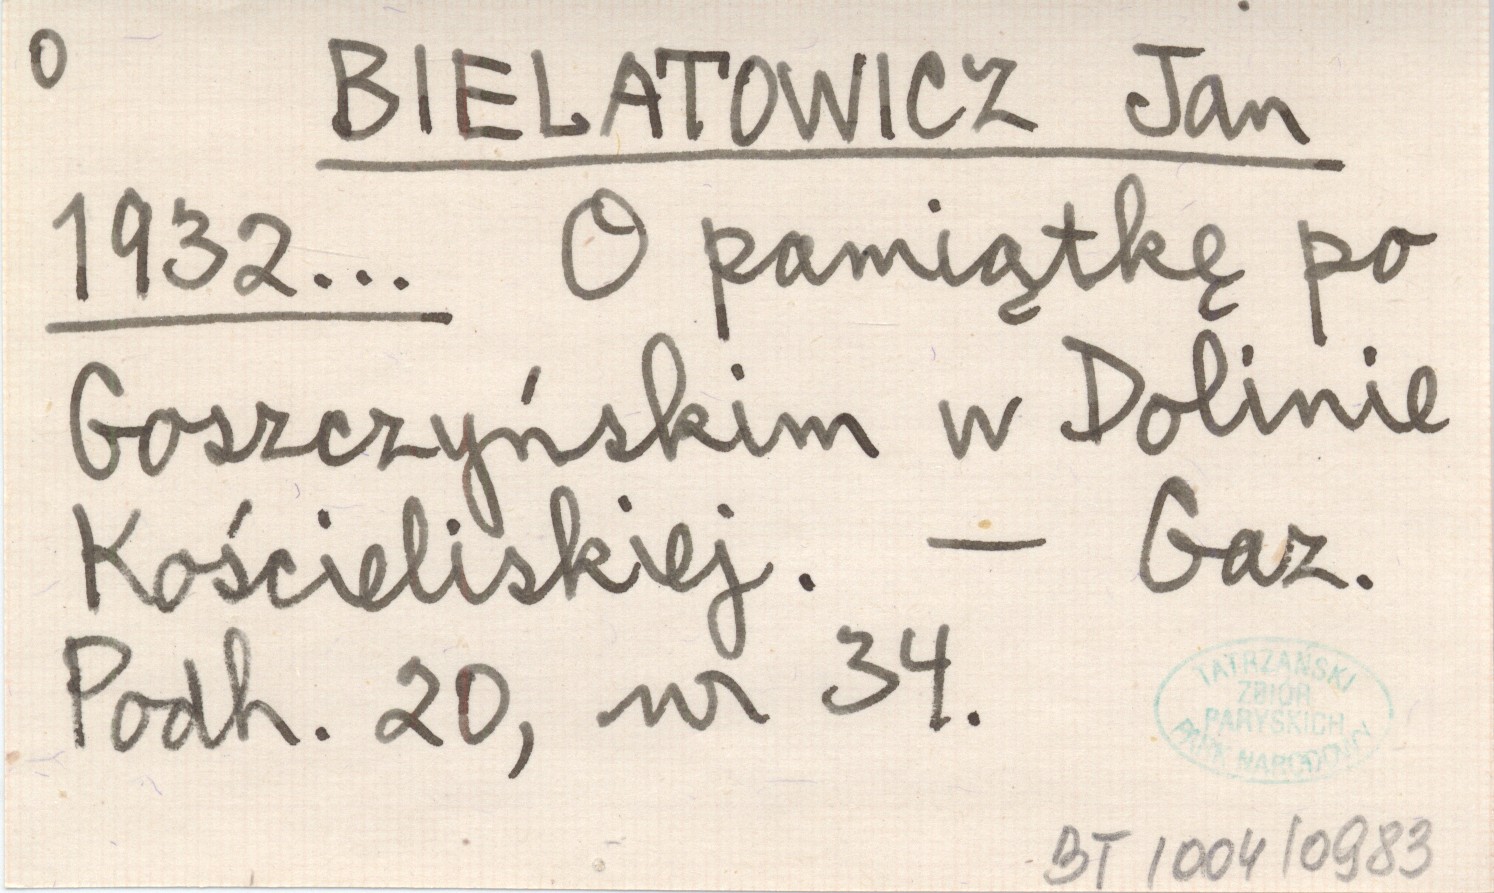 O BIELATOWICZ Jan
1932... O pamiątkę po
Goszczyńskim w Dolinie
Kościeliskiej. — Gaz.
Podh. 20, nr 34.
TATRZAŃSKI
ZBIÓR
PARYSKICH
PARK NARODOWY
BT 1004/0983